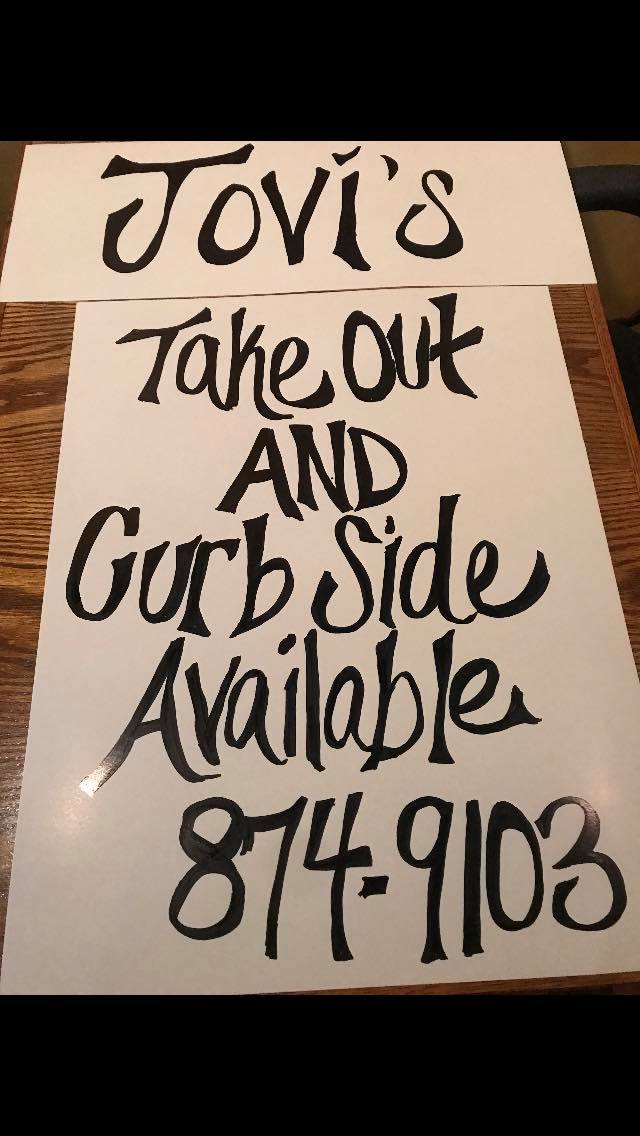 Jovi's
Take Out
AND
Curb Side
Available
874-9103